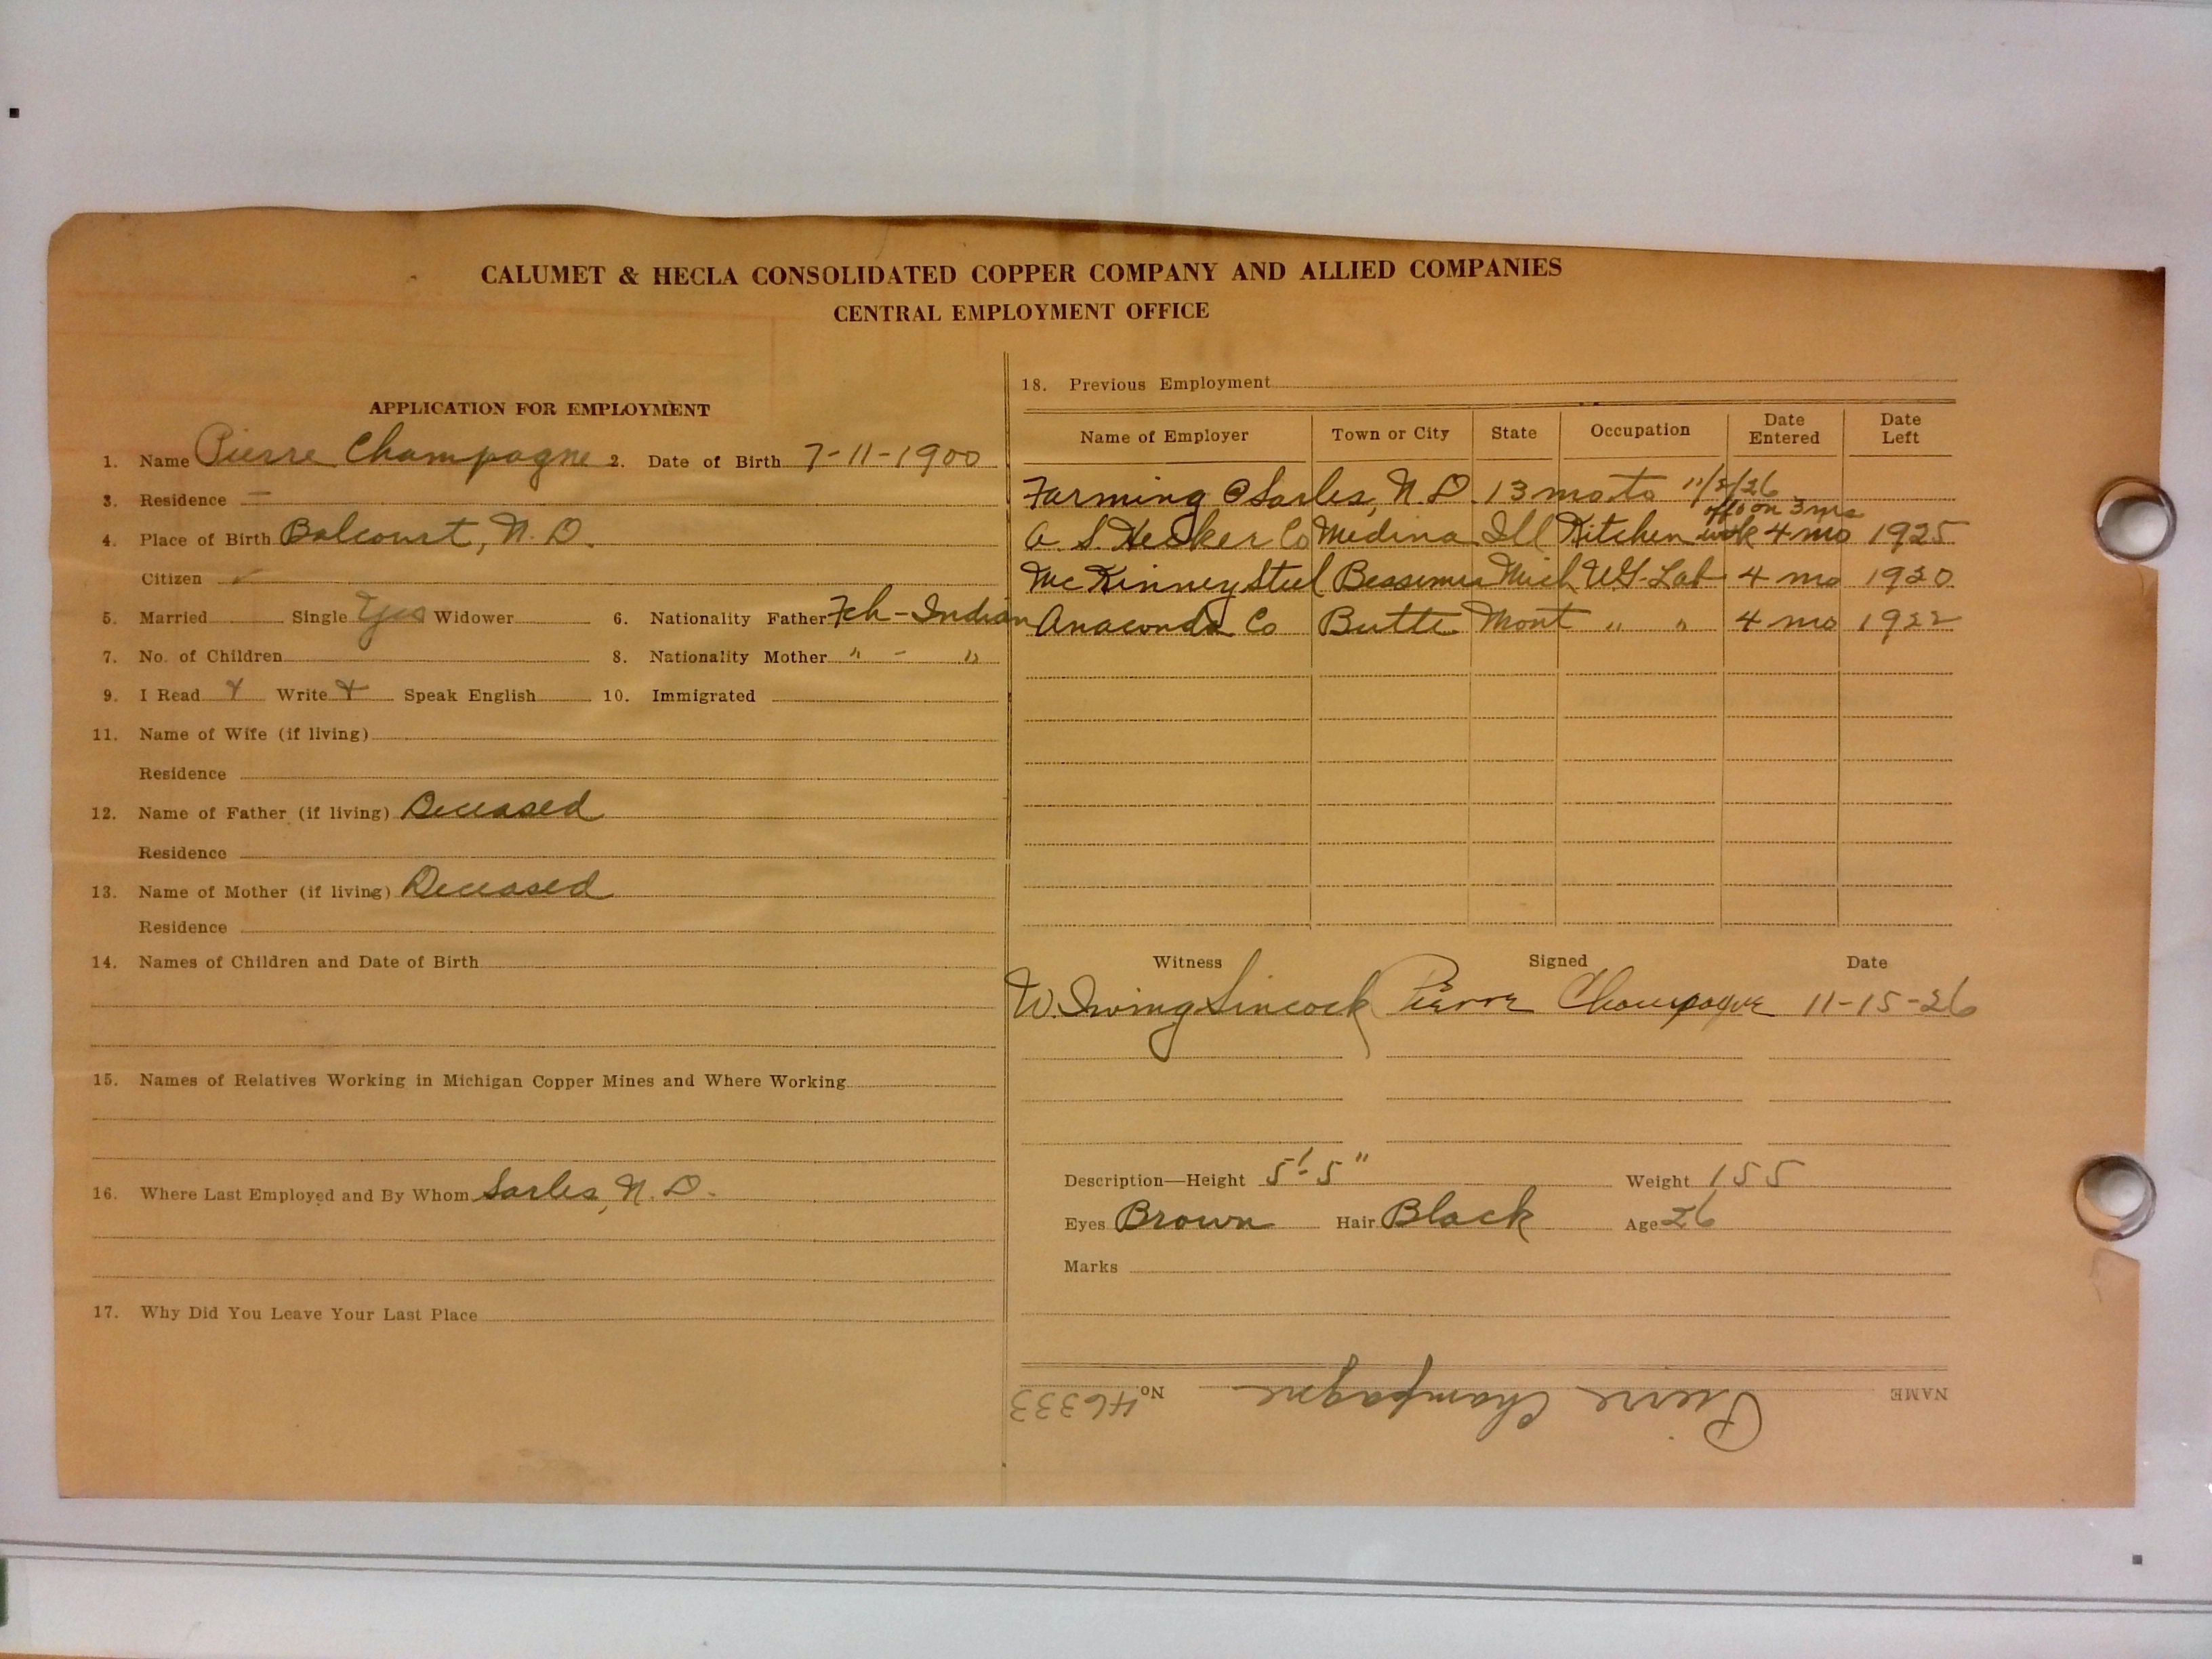 CALUMET & HECLA CONSOLIDATED COPPER COMPANY AND ALLIED COMPANIES
CENTRAL EMPLOYMENT OFFICE
APPLICATION FOR EMPLOYMENT
1. Name Pierre Champagne 2. Date of Birth 7-11-1900
3. Residence —
4. Place of Birth Balcourt, N. D.
Citizen ✓
5. Married Single Yes Widower 6. Nationality Father Fch-Indian
7. No. of Children 8. Nationality Mother " - "
9. I Read Y Write Y Speak English 10. Immigrated
11. Name of Wife (if living)
Residence
12. Name of Father (if living) Deceased
Residence
13. Name of Mother (if living) Deceased
Residence
14. Names of Children and Date of Birth
15. Names of Relatives Working in Michigan Copper Mines and Where Working
16. Where Last Employed and By Whom Sarles, N. D.
17. Why Did You Leave Your Last Place
18. Previous Employment
Name of Employer Town or City State Occupation Date Entered Date Left
Farming @ Sarles, N. D. 13 mo to 11/2/26
off & on 3 yrs
A. S. Hecker Co Medina Ill Kitchen work 4 mo 1925
McKinney Steel Bessemer Mich UG-Lab 4 mo 1920
Anaconda Co Butte Mont " " 4 mo 1922
Witness Signed Date
W. Irving Sincock Pierre Champagne 11-15-26
Description—Height 5'-5" Weight 155
Eyes Brown Hair Black Age 26
Marks
NAME Pierre Champagne No. 46333